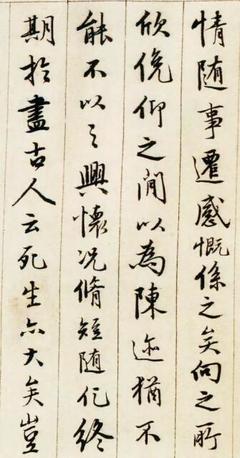 情随事遷感慨係之矣向之所
欣俛仰之閒以為陳迹猶不
能不以之興懷況脩短随化終
期於盡古人云死生亦大矣豈